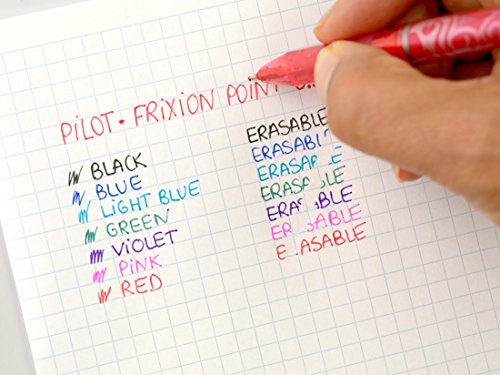 PILOT • FRIXION POINT
BLACK
BLUE
LIGHT BLUE
GREEN
VIOLET
PINK
RED
ERASABLE
ERASABLE
ERASABLE
ERASABLE
ERASABLE
ERASABLE
ERASABLE